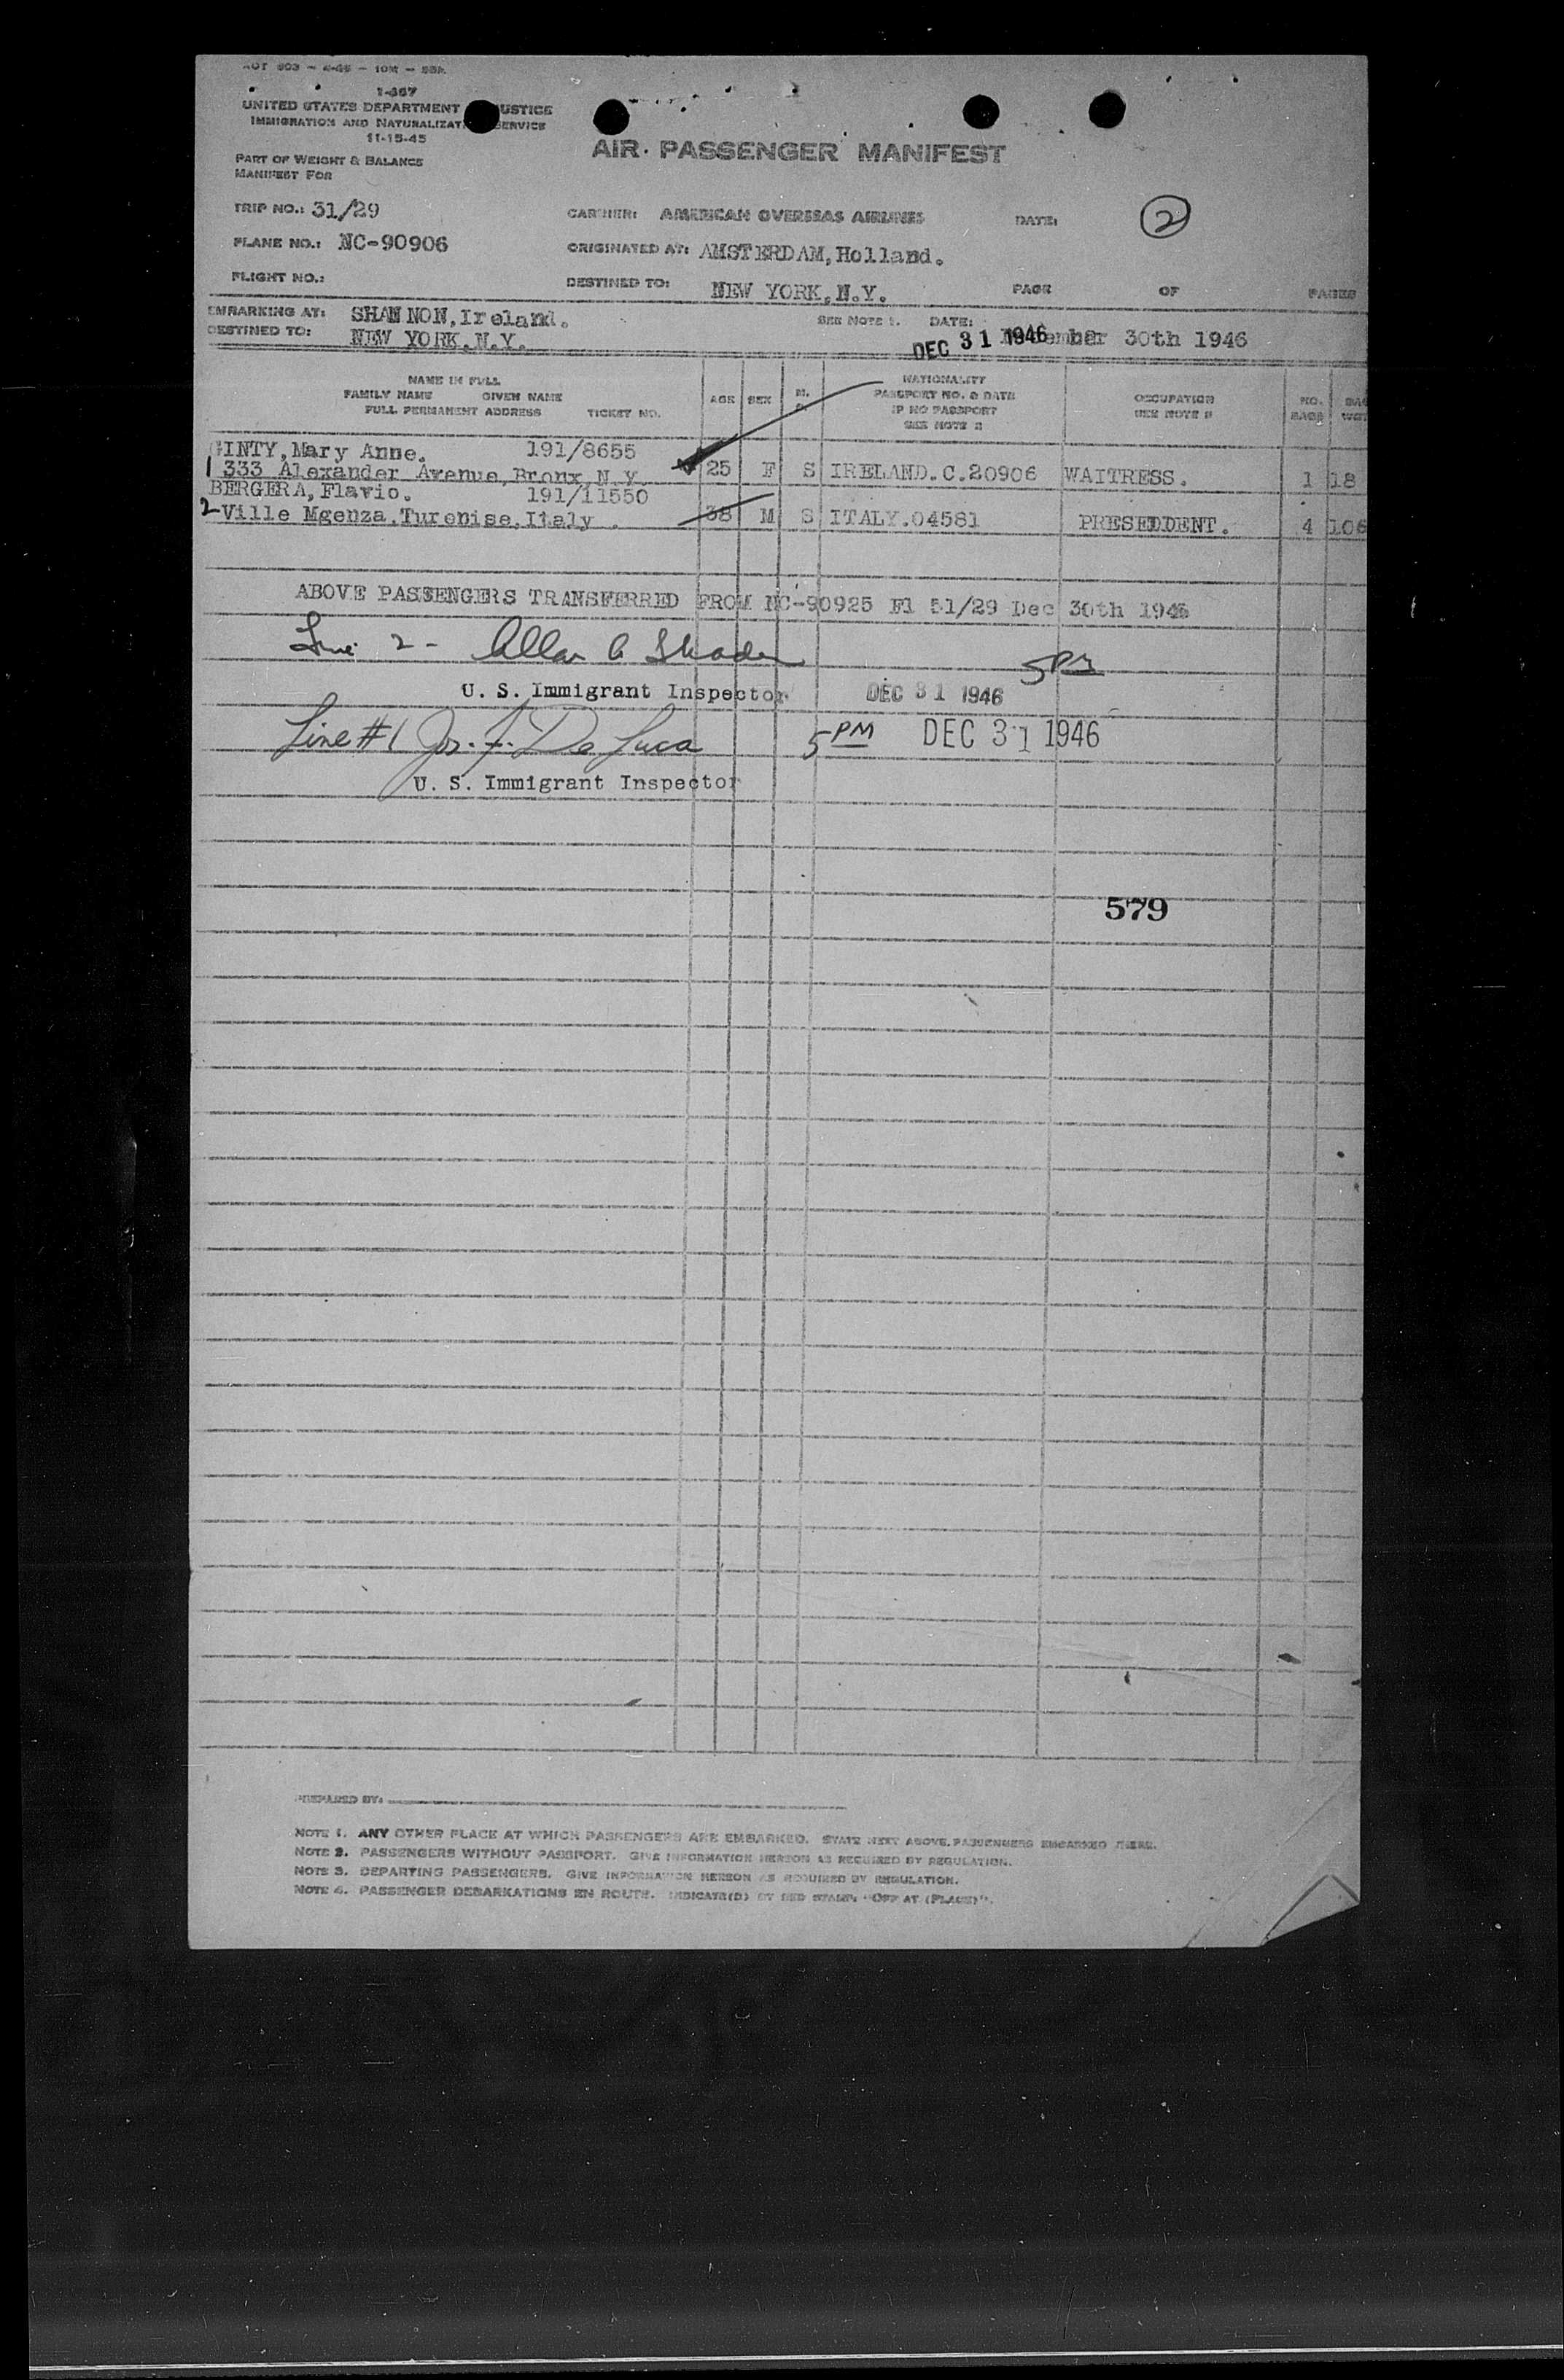 1-467
UNITED STATES DEPARTMENT USTICE
IMMIGRATION AND NATURALIZAT SERVICE
11-15-45
AIR PASSENGER MANIFEST
PART OF WEIGHT & BALANCE
MANIFEST FOR
TRIP NO.: 31/29 CARRIER: AMERICAN OVERSEAS AIRLINES DATE: 2
PLANE NO.: NC-90906 ORIGINATED AT: AMSTERDAM, Holland.
FLIGHT NO.: DESTINED TO: NEW YORK, N.Y. PAGE OF PAGES
EMBARKING AT: SHANNON, Ireland. SEE NOTE 1. DATE: DEC 31 1946 30th 1946
DESTINED TO: NEW YORK, N.Y.
NAME IN FULL
FAMILY NAME GIVEN NAME
FULL PERMANENT ADDRESS TICKET NO.
AGE SEX M.
NATIONALITY
PASSPORT NO. & DATE
IF NO PASSPORT
SEE NOTE 2
OCCUPATION
SEE NOTE
NO.
BAGS
GINTY, Mary Anne. 191/8655
1 333 Alexander Avenue, Bronx, N.Y. 25 F S IRELAND.C.20906 WAITRESS. 1 18
BERGERA, Flavio. 191/11550
2 Ville Mgenza, Turenise, Italy . 38 M S ITALY.04581 PRESEDDENT. 4 106
ABOVE PASSENGERS TRANSFERRED FROM NC-90925 Fl 51/29 Dec 30th 1946
Line 2 - Allan C Shader 5 PM
U. S. Immigrant Inspector DEC 31 1946
Line #1 Jos. F. De Luca 5 PM DEC 31 1946
U. S. Immigrant Inspector
579
PREPARED BY:
NOTE 1. ANY OTHER PLACE AT WHICH PASSENGERS ARE EMBARKED. STATE NEXT ABOVE, PASSENGERS EMBARKED THERE.
NOTE 2. PASSENGERS WITHOUT PASSPORT. GIVE INFORMATION HEREON AS REQUIRED BY REGULATION.
NOTE 3. DEPARTING PASSENGERS. GIVE INFORMATION HEREON AS REQUIRED BY REGULATION.
NOTE 4. PASSENGER DEBARKATIONS EN ROUTE. INDICATE(D) BY RED STAMP: "OFF AT (PLACE)".